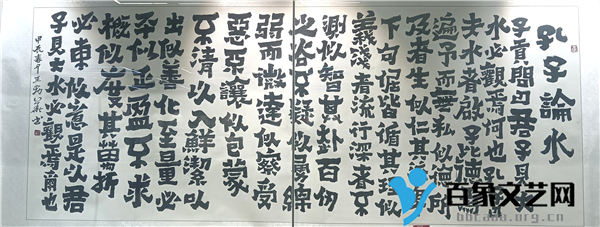 孔子論水
子貢問曰君子見大
水必觀焉何也孔子曰
夫水者君子比德焉
遍予而無私似德所
及者生似仁其流卑
下句倨皆循其理似
義淺者流行深者不
測似智其赴百仞
之谷不疑似勇綿
弱而微達似察受
惡不讓似包蒙
不清以入鮮潔以
出似善化至量必
平似正盈不求
概似度其萬折
必東似意是以君
子見大水必觀焉爾也
甲辰春
百家文艺网